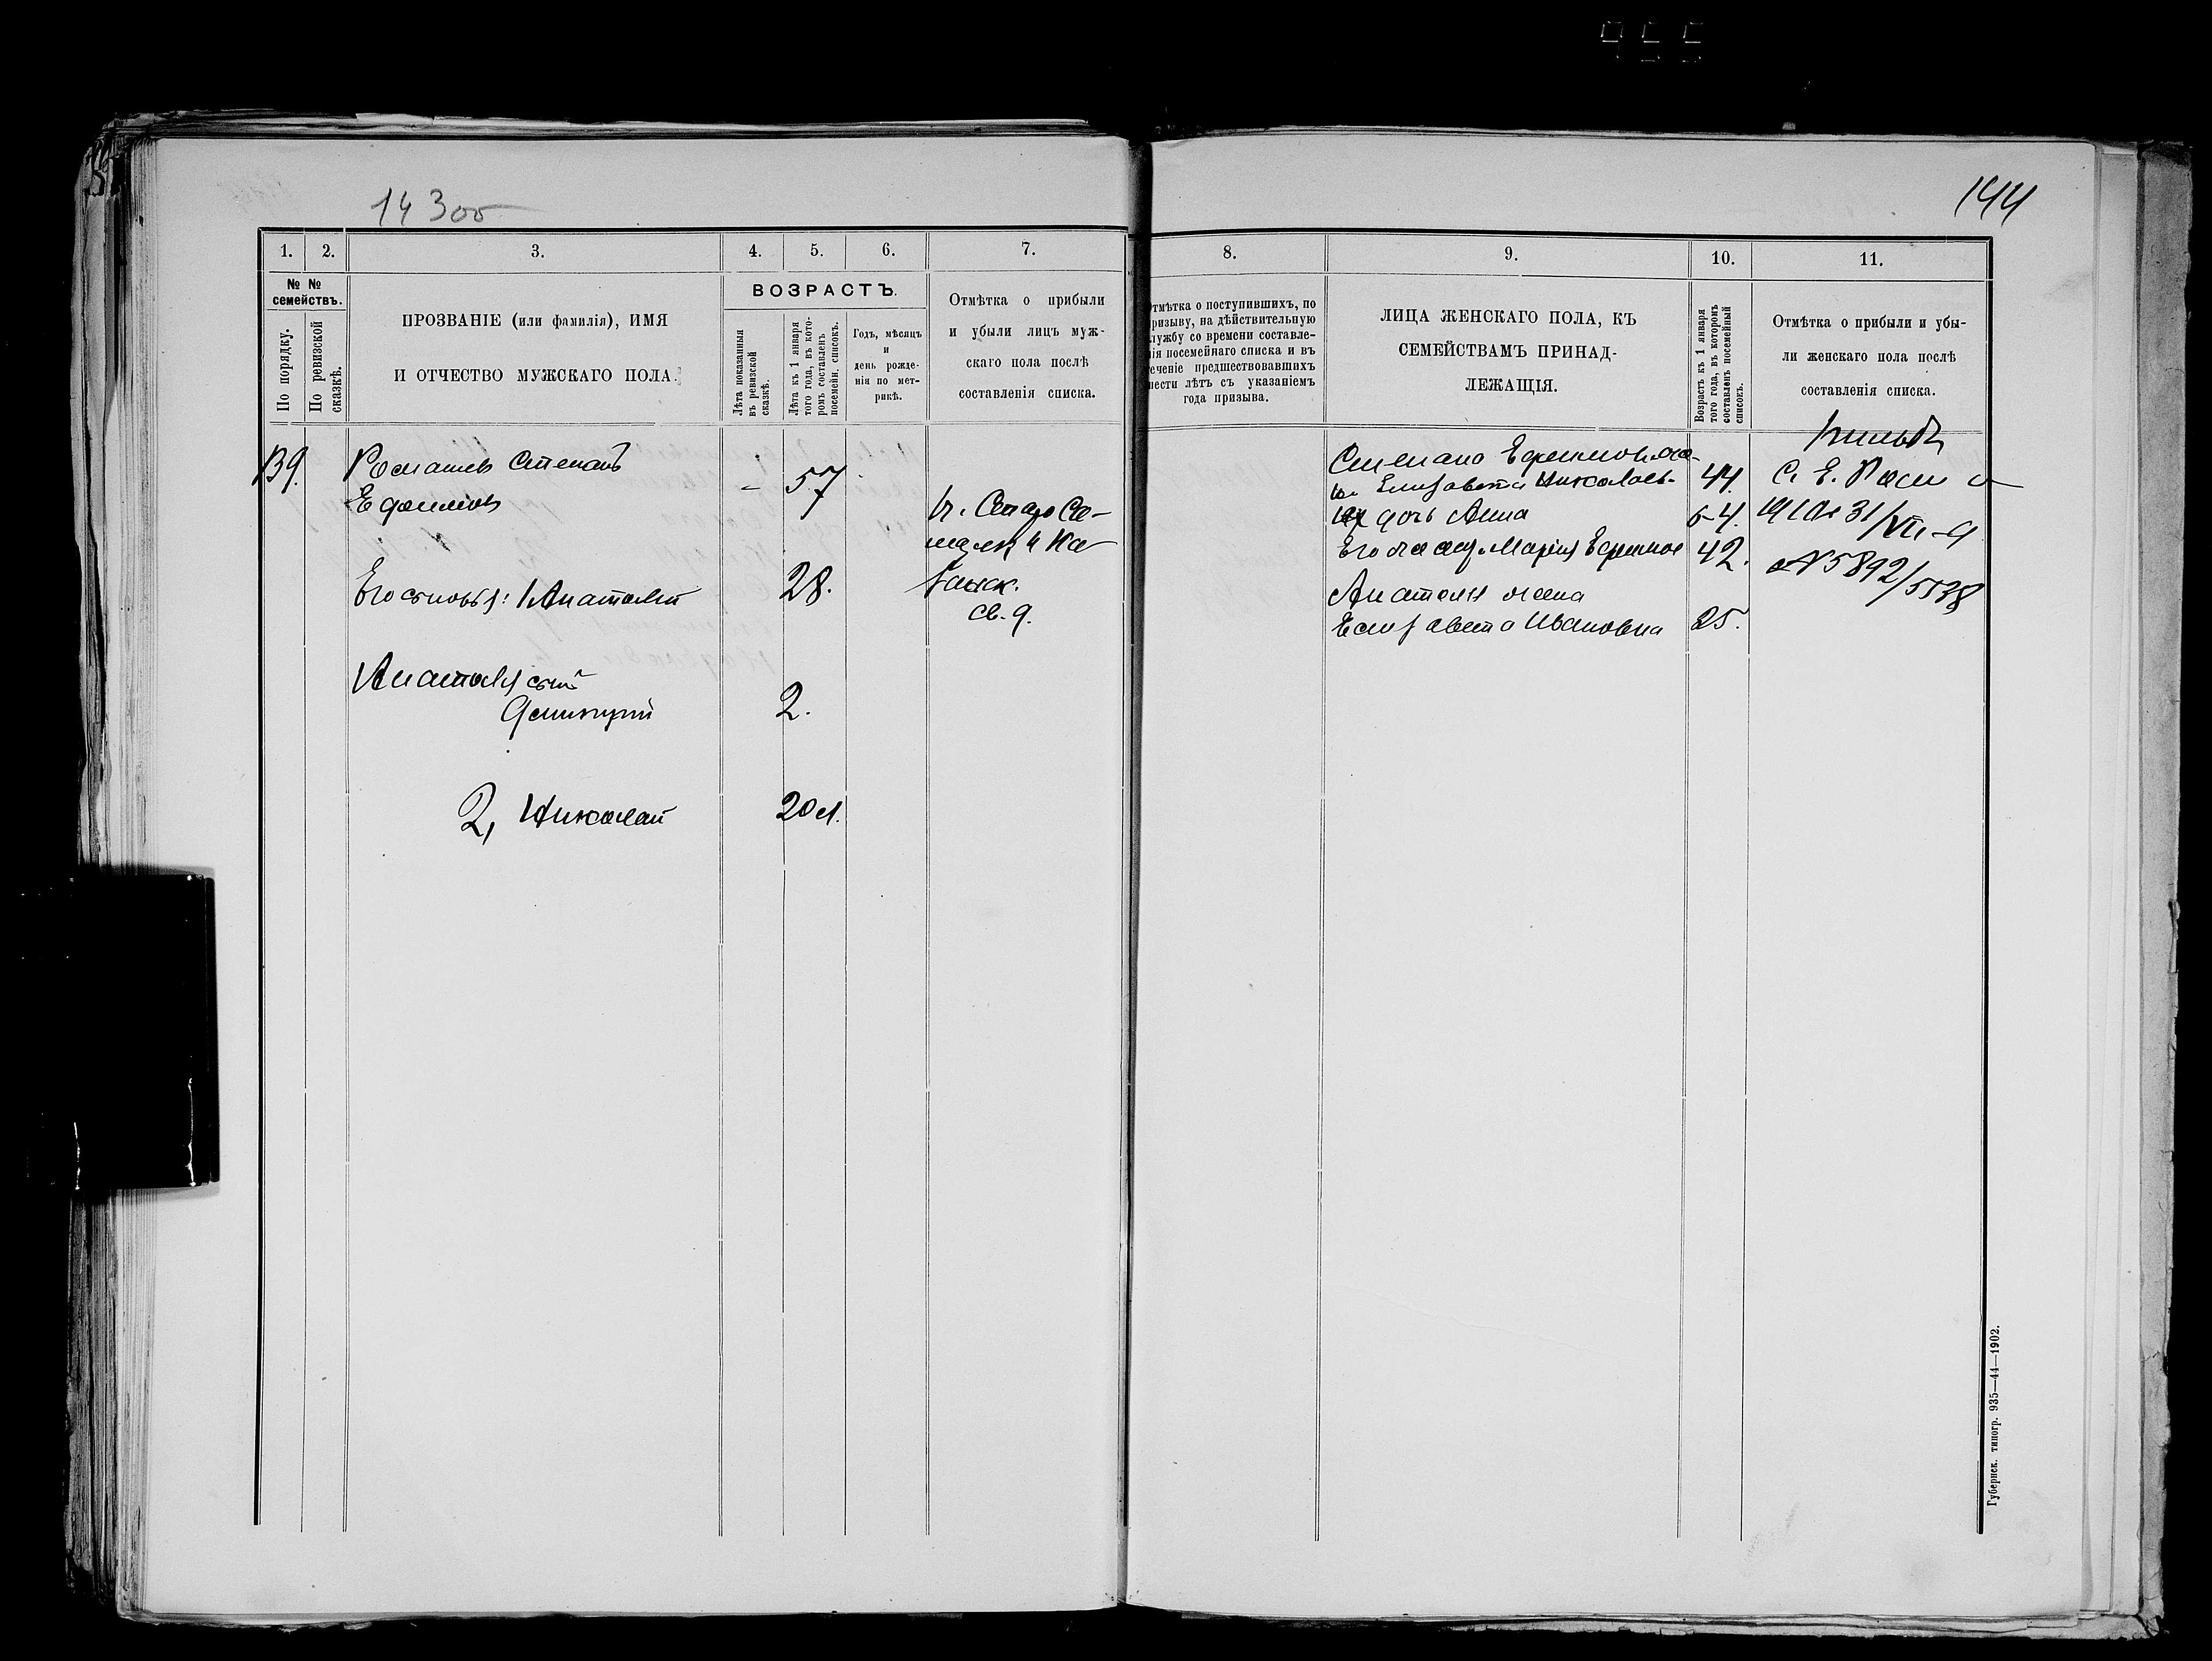 955
14300
144
1.
2.
3.
4.
5.
6.
7.
8.
9.
10.
11.
№ №
семействъ.
По порядку.
По ревизской
сказкѣ.
ПРОЗВАНІЕ (или фамилія), ИМЯ
И ОТЧЕСТВО МУЖСКАГО ПОЛА.
ВОЗРАСТЪ.
Лѣта показанныя
въ ревизской
сказкѣ.
Лѣта къ 1 января
того года, въ кото-
ромъ составленъ
посемейн. списокъ.
Годъ, мѣсяцъ
и
день рожде-
нія по мет-
рикѣ.
Отмѣтка о прибыли
и убыли лицъ муж-
скаго пола послѣ
составленія списка.
тмѣтка о поступившихъ, по
ризыву, на дѣйствительную
лужбу со времени составле-
ія посемейнаго списка и въ
еченіе предшествовавшихъ
шести лѣтъ съ указаніемъ
года призыва.
ЛИЦА ЖЕНСКАГО ПОЛА, КЪ
СЕМЕЙСТВАМЪ ПРИНАД-
ЛЕЖАЩІЯ.
Возрастъ къ 1 января
того года, въ которомъ
составленъ посемейный
списокъ.
Отмѣтка о прибыли и убы-
ли женскаго пола послѣ
составленія списка.
139.
Степанъ
Ефимовъ
-
57
Его сыновья: 1, Анатолій
28.
Анатолія сынъ
Димитрій
2.
2, Николай
20 л.
св. 9.
Степана Ефимова же-
на Елизавета Николаев-
44.
дочь Анна
54.
Его Марія Ефимов
42.
Анатолія жена
Елизавета Ивановна
25.
С. Е.
31/VII-9
№5892/5538
Губернск. типогр. 935—44—1902.